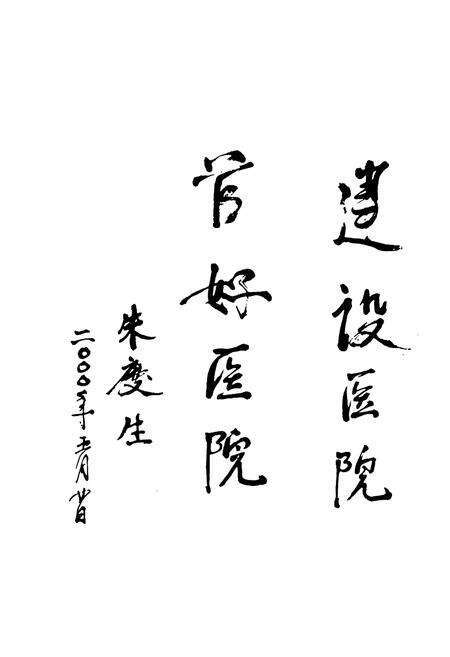 建设医院
管好医院
朱庆生
二〇〇〇年五月廿日